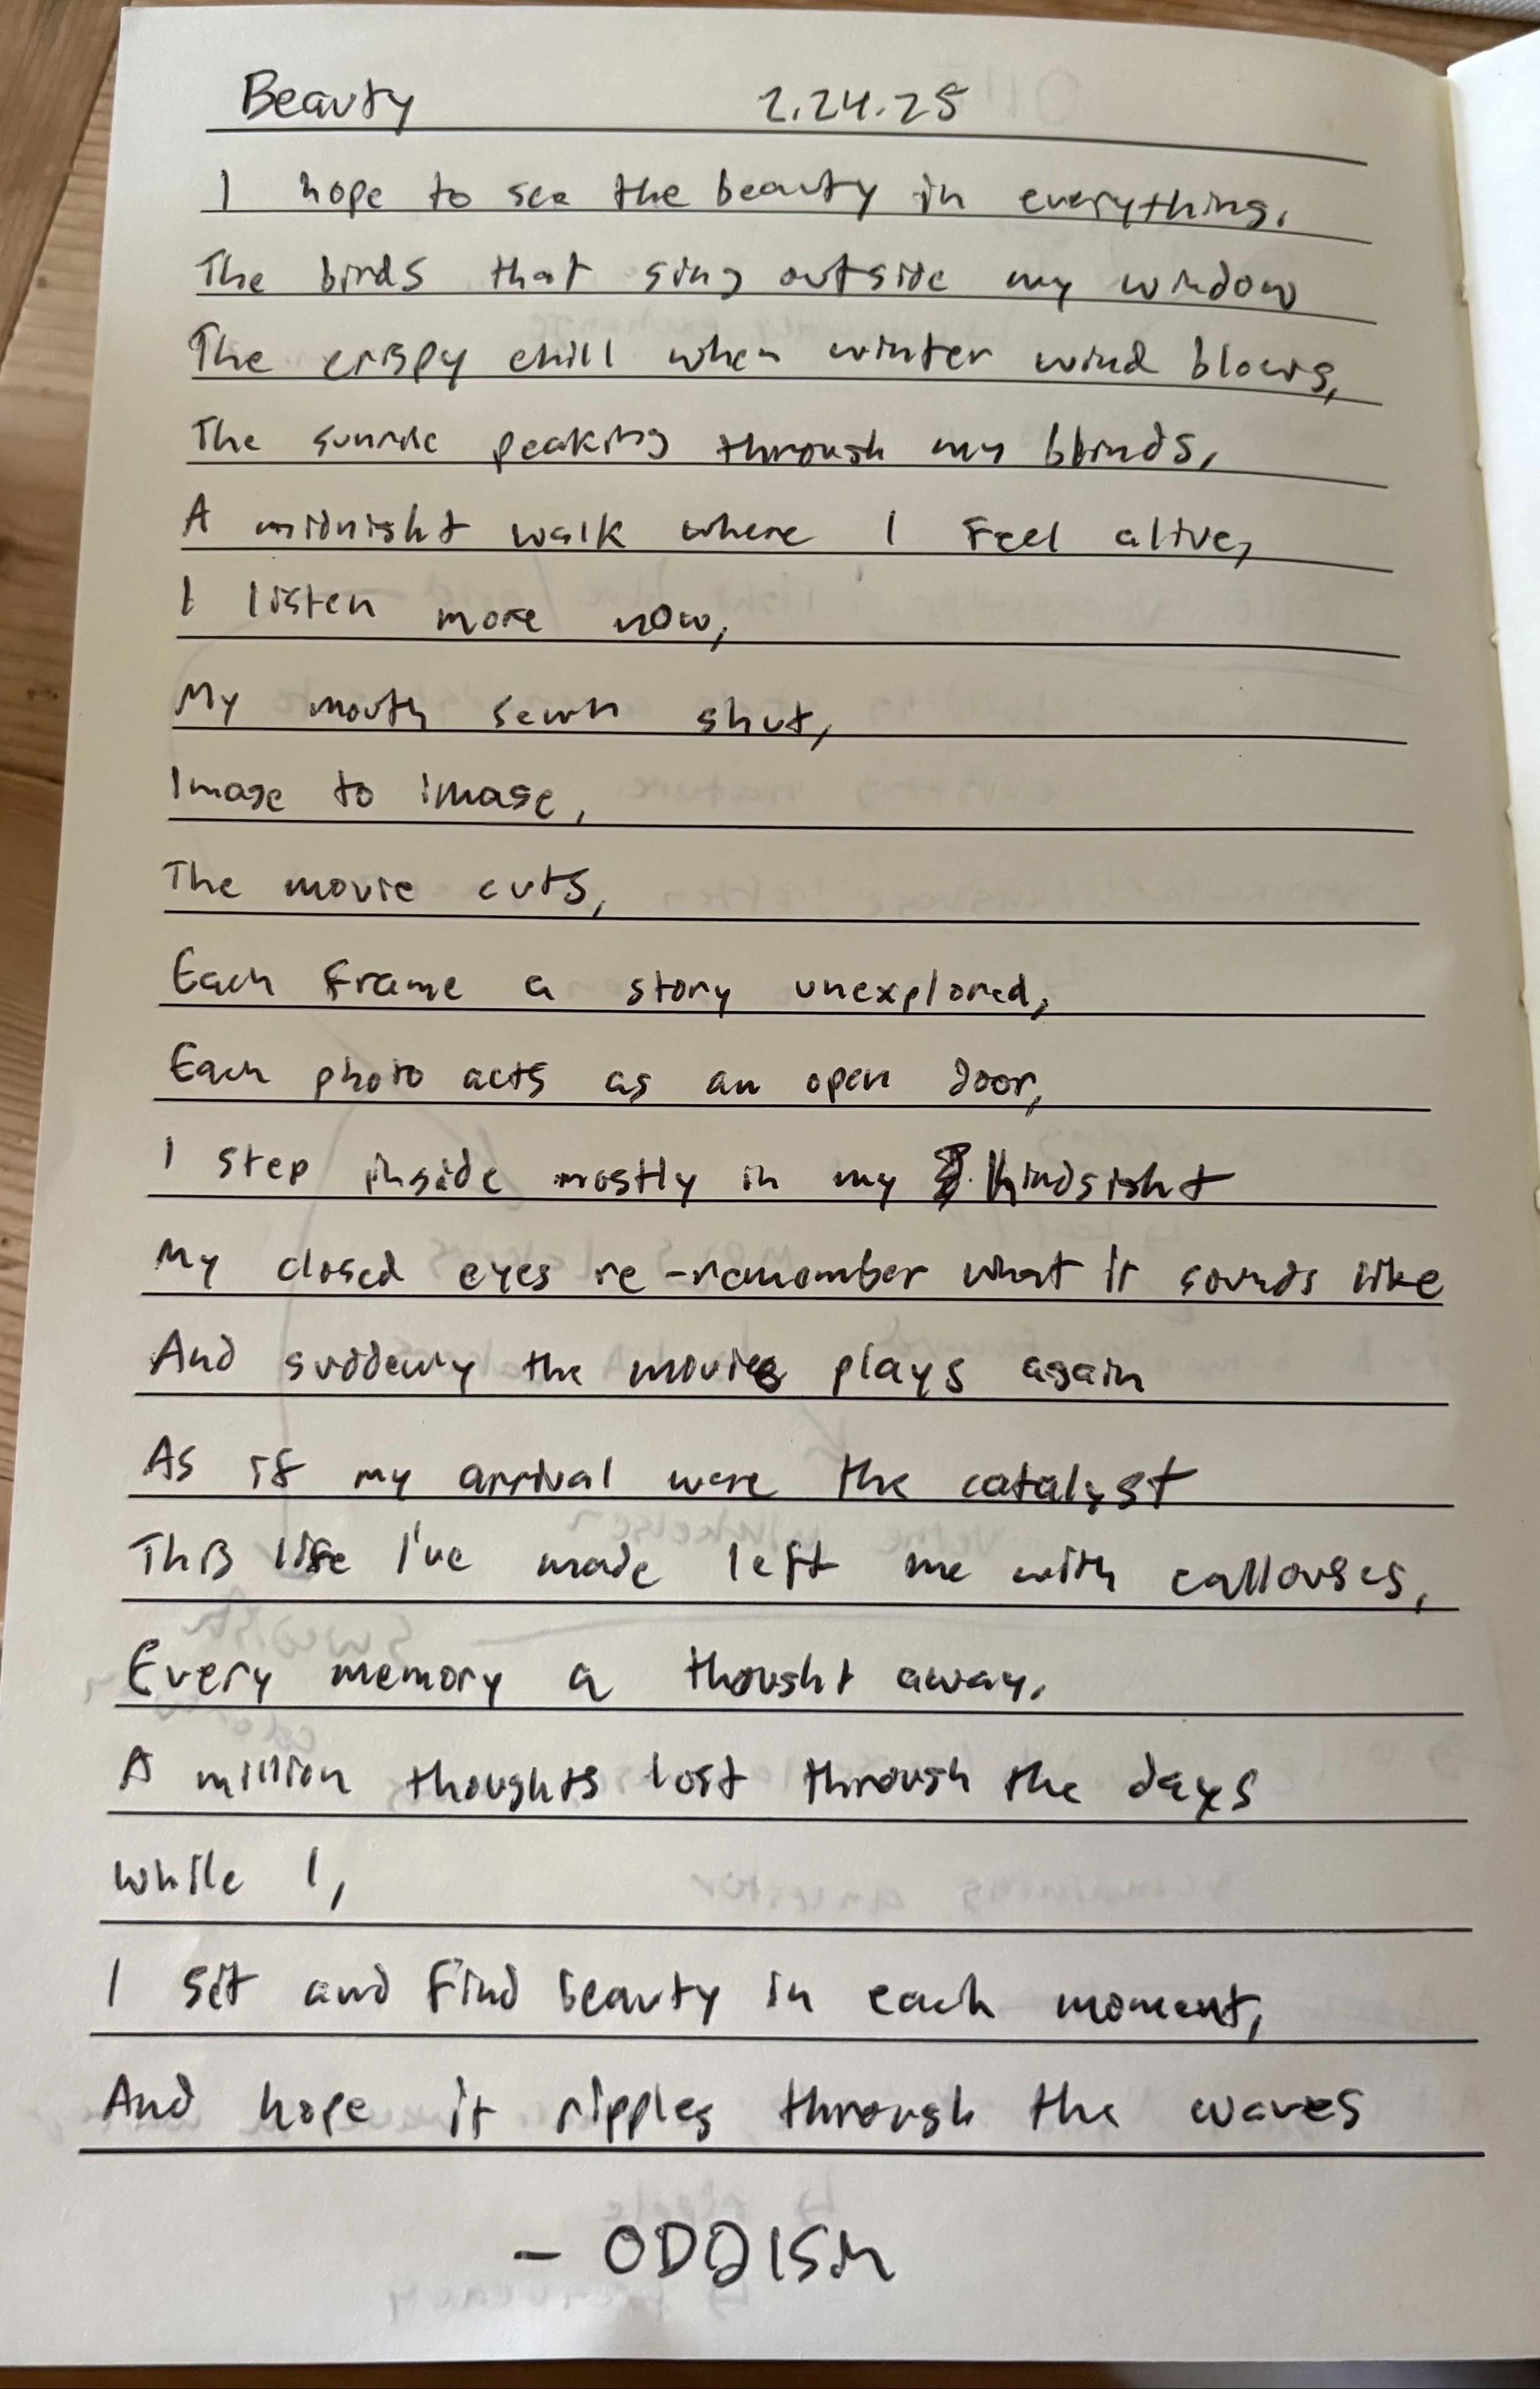 Beauty 2.24.25
I hope to see the beauty in everything.
The birds that sing outside my window
The crispy chill when winter wind blows,
The sunrise peaking through my blinds,
A midnight walk where I feel alive,
I listen more now,
My mouth sewn shut,
Image to image,
The movie cuts,
Each frame a story unexplored,
Each photo acts as an open door,
I step inside mostly in my hindsight
My closed eyes re-remember what it sounds like
And suddenly the movie plays again
As if my arrival were the catalyst
This life I've made left me with callouses,
Every memory a thought away.
A million thoughts lost through the days
while I,
I sit and find beauty in each moment,
And hope it ripples through the waves
- ODDISH